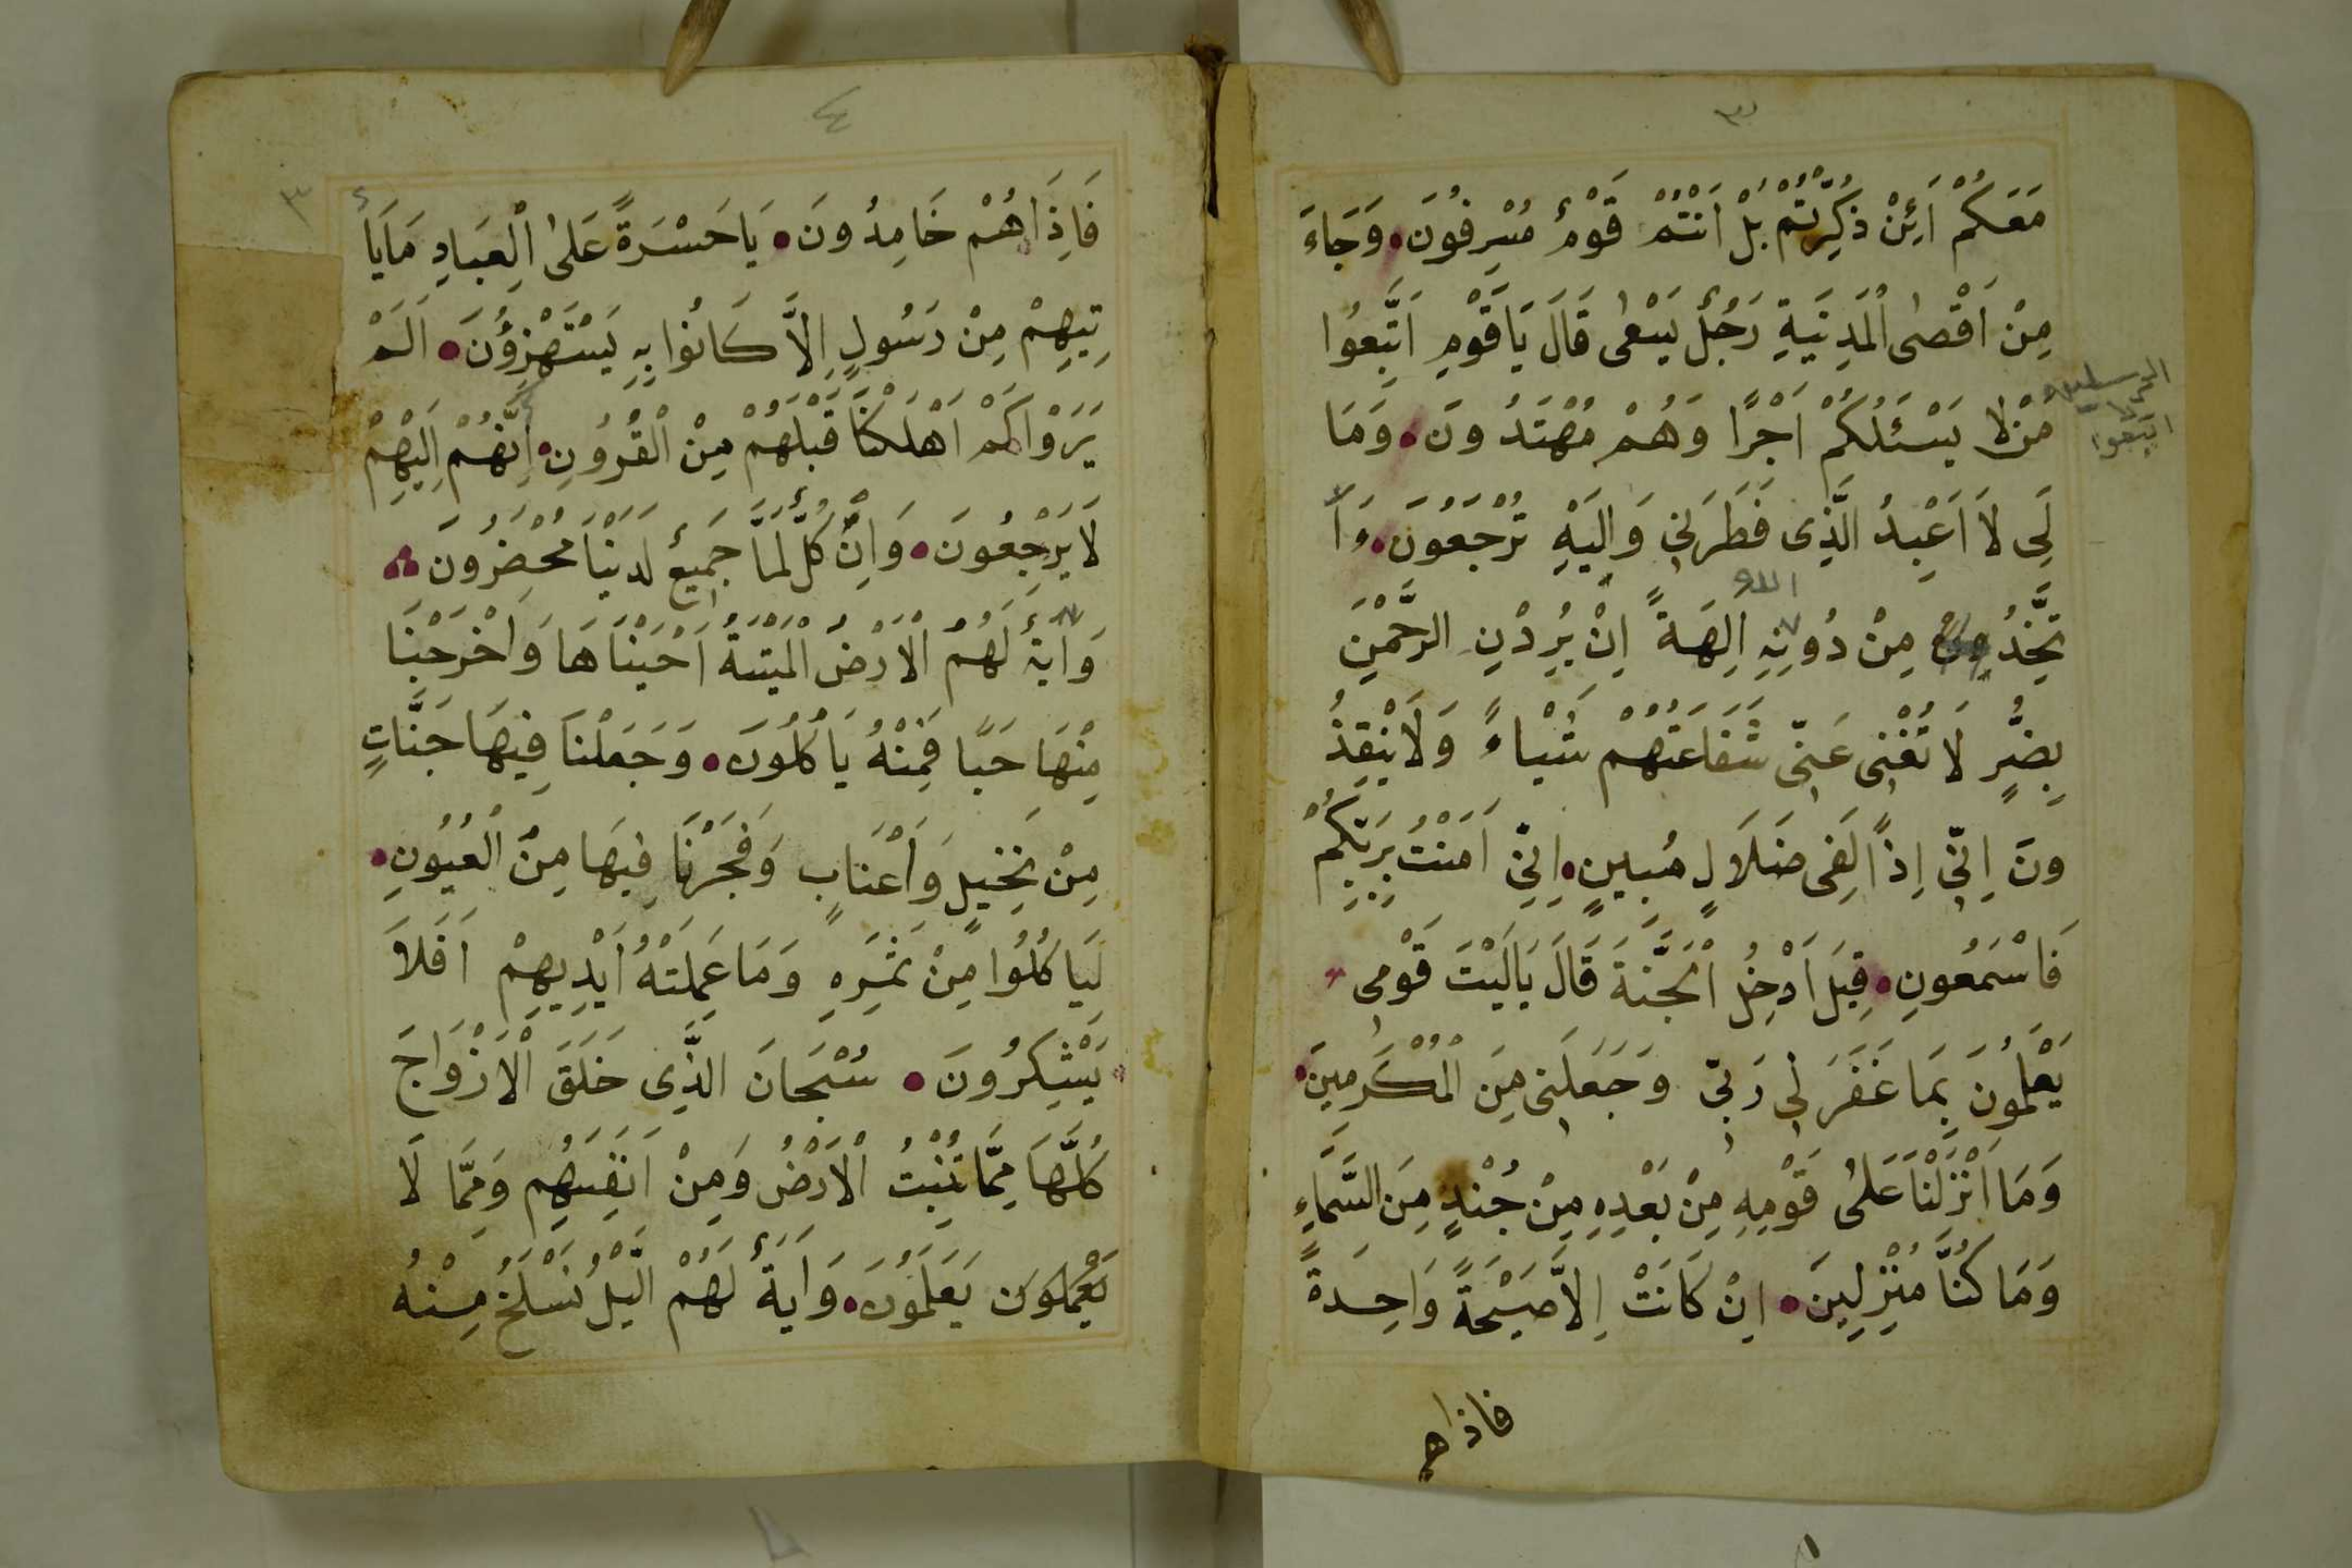 ٣
مَعَكُمْ اَئِنْ ذُكِّرْتُمْ بَلْ اَنْتُمْ قَوْمٌ مُسْرِفُونَ وَجَاءَ
مِنْ اَقْصٰى الْمَدِينَةِ رَجُلٌ يَسْعٰى قَالَ يَاقَوْمِ اتَّبِعُوا
المرسلين
اتبعوا
مَنْ لا يَسْئَلُكُمْ اَجْرًا وَهُمْ مُهْتَدُونَ وَمَا
لِىَ لَا اَعْبُدُ الَّذِى فَطَرَنِى وَاِلَيْهِ تُرْجَعُونَ ءَاَ
تَّخِذُ مِنْ دُونِهِ اٰلِهَةً اِنْ يُرِدْنِ الرَّحْمٰنِ
بِضُرٍّ لَا تُغْنِى عَنِّى شَفَاعَتُهُمْ شَيْاءً وَلَا يُنْقِذُ
ونَ اِنِّى اِذًا لَفِى ضَلَالٍ مُبِينٍ اِنِّى اَمَنْتُ بِرَبِّكُمْ
فَاسْمَعُونِ قِيلَ ادْخُلِ الْجَنَّةَ قَالَ يَالَيْتَ قَوْمِى
يَعْلَمُونَ بِمَا غَفَرَ لِى رَبِّى وَجَعَلَنِى مِنَ الْمُكْرَمِينَ
وَمَا اَنْزَلْنَا عَلٰى قَوْمِهِ مِنْ بَعْدِهِ مِنْ جُنْدٍ مِنَ السَّمَاءِ
وَمَا كُنَّا مُنْزِلِينَ اِنْ كَانَتْ اِلَّا صَيْحَةً وَاحِدَةً
فاذاهم
٤
٣
فَاِذَا هُمْ خَامِدُونَ يَاحَسْرَةً عَلٰى الْعِبَادِ مَايَأ
تِيهِمْ مِنْ رَسُولٍ اِلَّا كَانُوا بِهِ يَسْتَهْزِؤُنَ اَلَمْ
يَرَوْا كَمْ اَهْلَكْنَا قَبْلَهُمْ مِنْ الْقُرُونِ اَنَّهُمْ اِلَيْهِمْ
لَا يَرْجِعُونَ وَاِنْ كُلٌّ لَمَّا جَمِيعٌ لَدَيْنَا مُحْضَرُونَ
وَاٰيَةٌ لَهُمْ الْاَرْضُ الْمَيْتَةُ اَحْيَيْنَاهَا وَاَخْرَجْنَا
مِنْهَا حَبًّا فَمِنْهُ يَاكُلُونَ وَجَعَلْنَا فِيهَا جَنَّاتٍ
مِنْ نَخِيلٍ وَاَعْنَابٍ وَفَجَّرْنَا فِيهَا مِنْ الْعُيُونِ
لِيَاكُلُوا مِنْ ثَمَرِهِ وَمَا عَمِلَتْهُ اَيْدِيهِمْ اَفَلَا
يَشْكُرُونَ سُبْحَانَ الَّذِى خَلَقَ الْاَزْوَاجَ
كُلَّهَا مِمَّا تُنْبِتُ الْاَرْضُ وَمِنْ اَنْفُسِهِمْ وَمِمَّا لَا
يَعْلَمُونَ وَاٰيَةٌ لَهُمْ الَّيْلُ نَسْلَخُ مِنْهُ